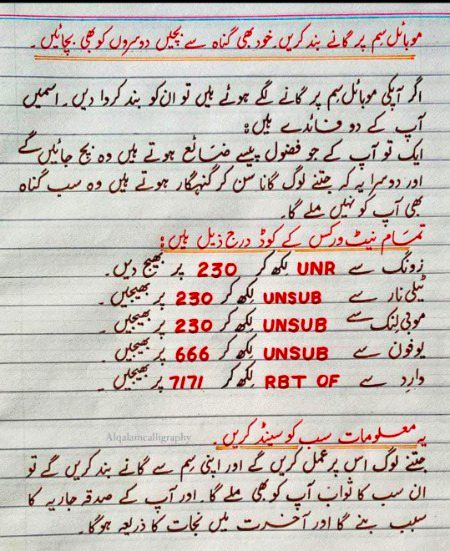 موبائل سم پر گانے بند کریں۔ خود بھی گناہ سے بچیں دوسروں کو بھی بچائیں۔
اگر آپکی موبائل سم پر گانے لگے ہوئے ہیں تو ان کو بند کروا دیں۔ اسمیں
آپ کے دو فائدے ہیں:
ایک تو آپ کے جو فضول پیسے ضائع ہوتے ہیں وہ بچ جائیں گے
اور دوسرا یہ کہ جتنے لوگ گانا سن کر گنہگار ہوتے ہیں وہ سب گناہ
بھی آپ کو نہیں ملے گا۔
تمام نیٹ ورکس کے کوڈ درج ذیل ہیں:
زونگ سے UNR لکھ کر 230 پر بھیج دیں۔
ٹیلی نار سے UNSUB لکھ کر 230 پر بھیجیں۔
موبی لنک سے UNSUB لکھ کر 230 پر بھیجیں۔
یوفون سے UNSUB لکھ کر 666 پر بھیجیں۔
وارد سے RBT OF لکھ کر 7171 پر بھیجیں۔
Alqalamcalligraphy
یہ معلومات سب کو سینڈ کریں۔
جتنے لوگ اس پر عمل کریں گے اور اپنی سم سے گانے بند کریں گے تو
ان سب کا ثواب آپ کو بھی ملے گا۔ اور آپ کے صدقہ جاریہ کا
سبب بنے گا اور آخرت میں نجات کا ذریعہ ہوگا۔